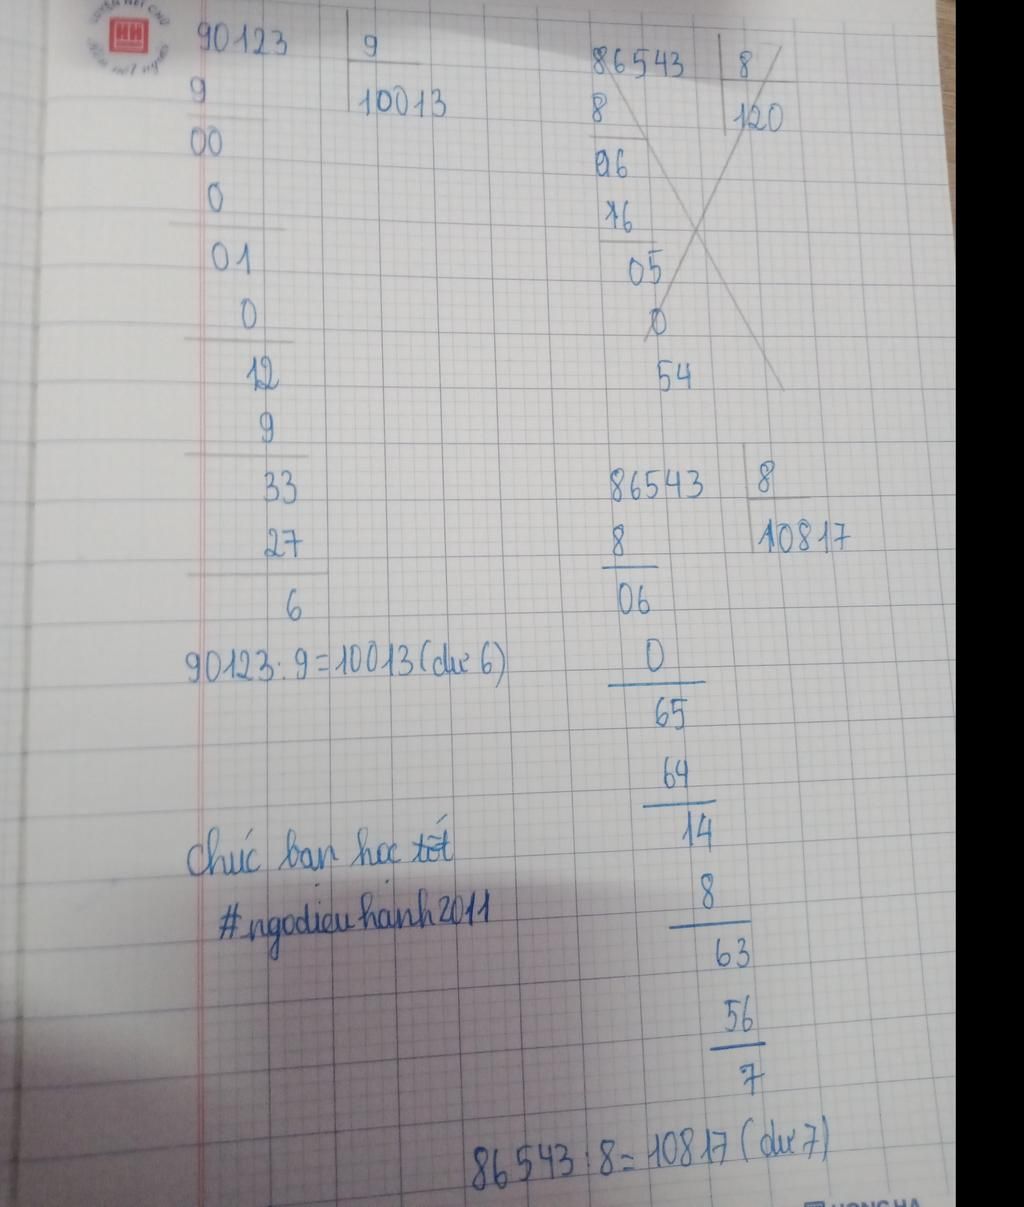 90123 9
9 10013
00
0
01
0
12
9
33
27
6
90123 : 9 = 10013 (dư 6)
chúc bạn học tốt
#ngodieuhanh2011
86543 8
8 120
06
16
05
0
54
86543 8
8 10817
06
0
65
64
14
8
63
56
7
86543 : 8 = 10817 (dư 7)